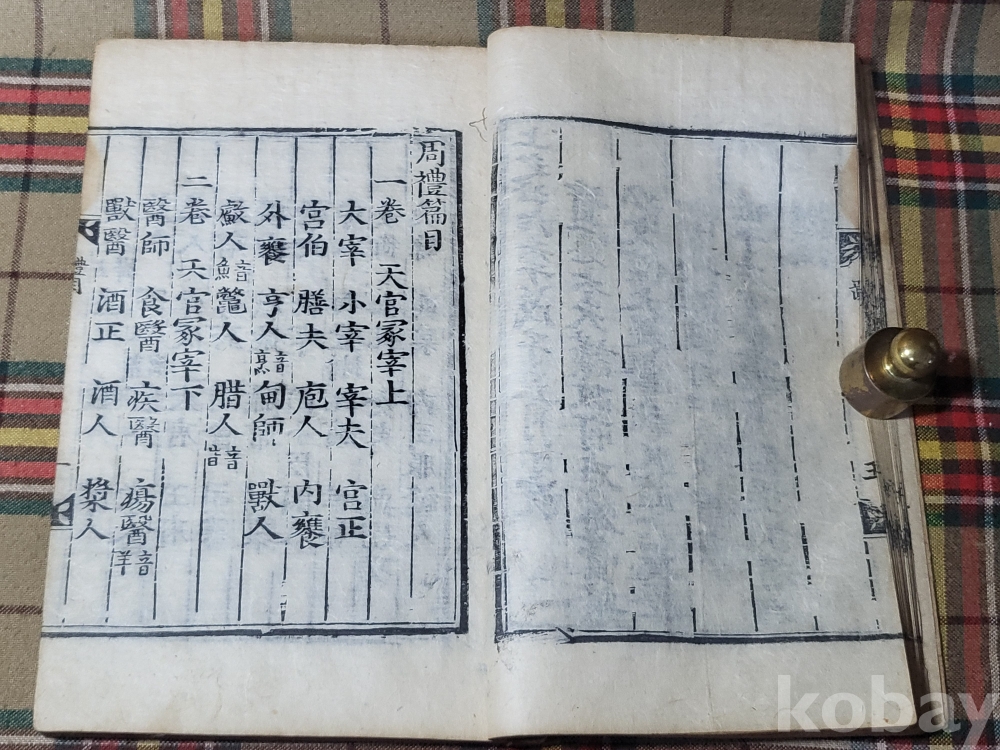 周禮篇目
一卷 天官冢宰上
大宰 小宰 宰夫 宮正
宮伯 膳夫 庖人 內饔
外饔 亨人音烹 甸師 獸人
䱷人音魚 鼈人 腊人音昔
二卷 天官冢宰下
醫師 食醫 疾醫 瘍醫音羊
獸醫 酒正 酒人 漿人
kobay